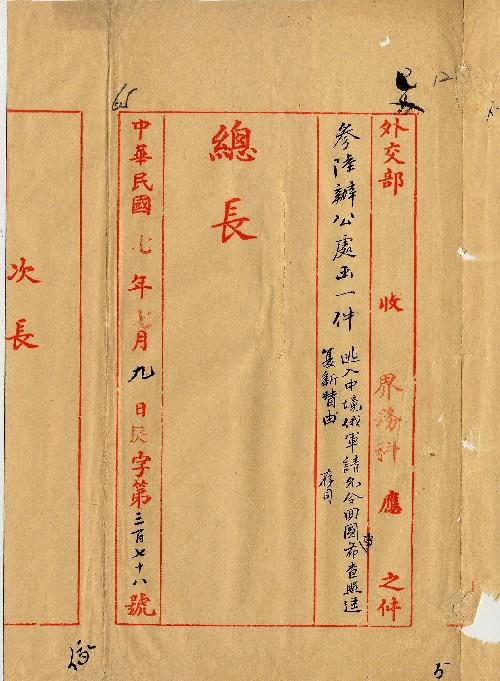 外交部 收 界務科 應 之件
參陸辦公處函一件
逃入中境俄軍請允令回國希查照逕
復新贊由
存司
總長
中華民國七年七月九日 字第三百七十八號
65
次長
12
5